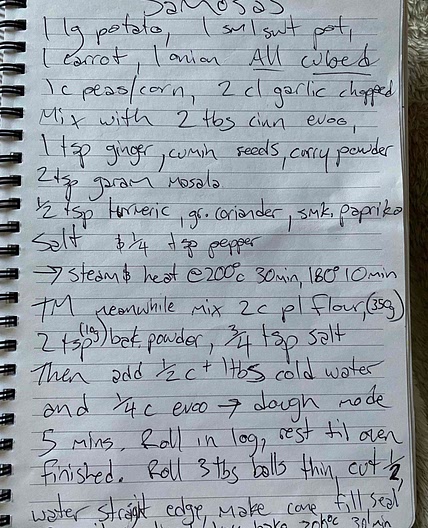 Samosas
1 lg potato, 1 sm/swt pot,
1 carrot, 1 onion All cubed
1c peas/corn, 2 cl garlic chopped
Mix with 2 tbs cinn evoo,
1 tsp ginger, cumin seeds, curry powder
2 tsp garam masala
1/2 tsp turmeric, gr. coriander, smk. paprika
Salt & 1/4 tsp pepper
→ Steam & heat @200°c 30min, 180° 10min
TM meanwhile mix 2c pl flour, (35g)
2 tsp (10g) bak powder, 3/4 tsp salt
Then add 1/2 c + 1tbs cold water
and 1/4 c evoo → dough mode
5 mins. Roll in log, rest til oven
finished. Roll 3tbs balls thin, cut 1/2,
water straight edge, make cone, fill seal